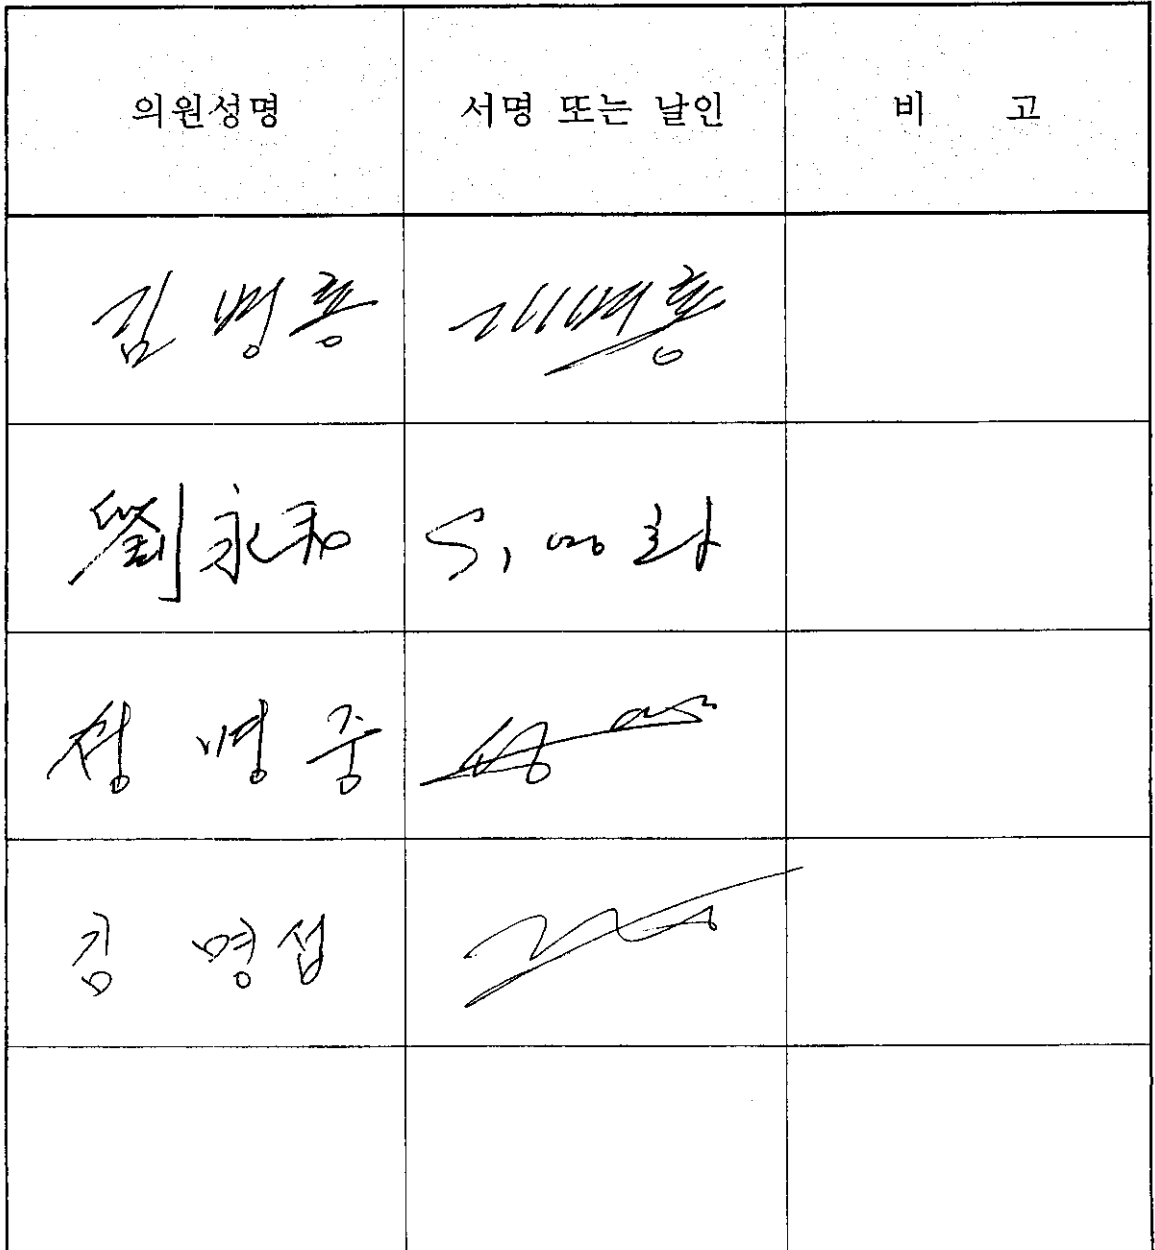 의원성명 서명 또는 날인 비 고
김병룡 김병룡
劉永和 영화
정병중
김명섭